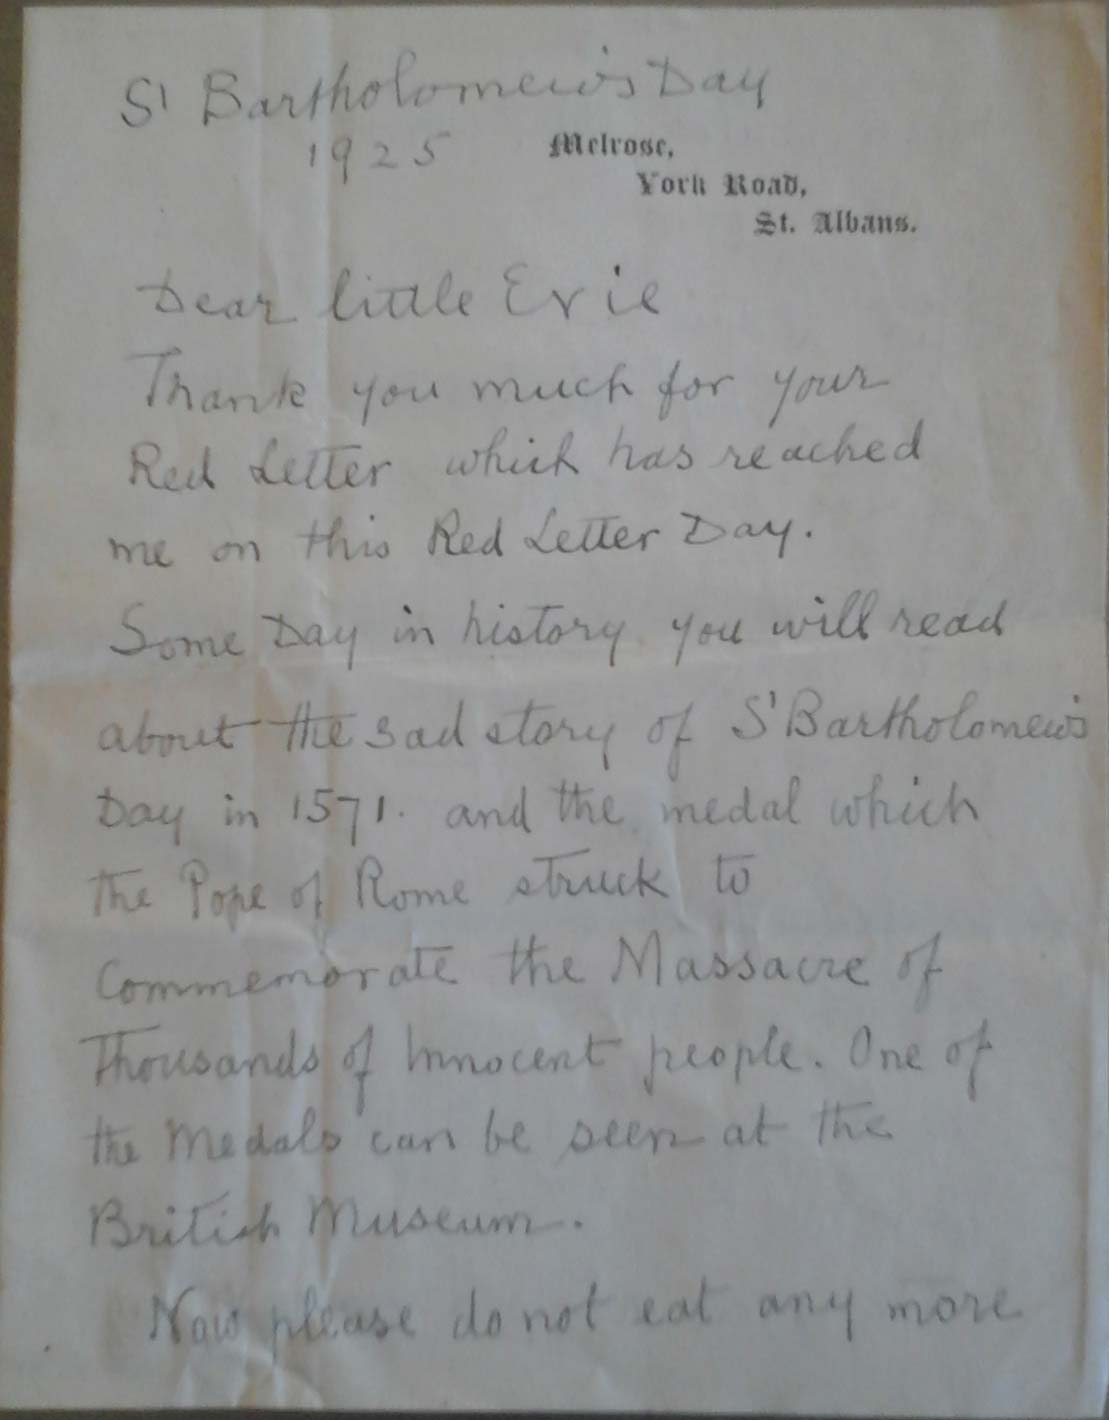 St Bartholomew's Day
1925
Melrose,
York Road,
St. Albans.
Dear little Evie
Thank you much for your
Red Letter which has reached
me on this Red Letter Day.
Some Day in history you will read
about the sad story of St Bartholomew's
Day in 1571. and the medal which
the Pope of Rome struck to
Commemorate the Massacre of
Thousands of Innocent people. One of
the Medals can be seen at the
British Museum.
Now please do not eat any more